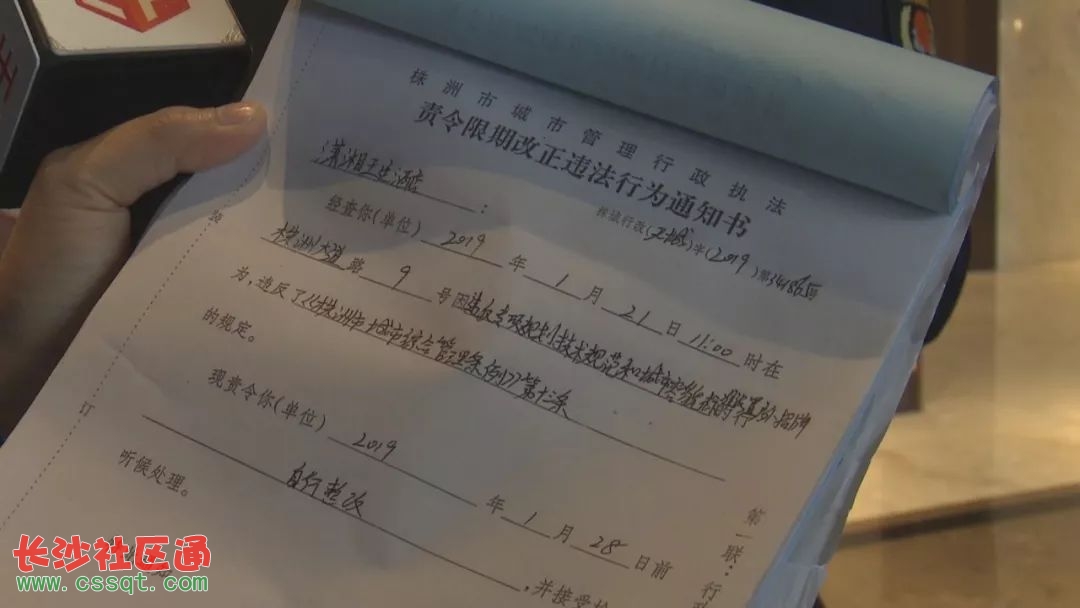 株洲市城市管理行政执法
责令限期改正违法行为通知书
株城行改(天城)字(2019)第号
潇湘王生酒店:
经查你(单位)2019年1月21日11:00时在
株洲大道路9号因违反专项规划技术规范和城市容貌标准设置户外招牌行
为,违反了《株洲市城市综合管理条例》第十三条
的规定。
现责令你(单位)2019年1月28日前
自行整改,并接受
听候处理。
装
订
第一联:行政
长沙社区通
www.cssqt.com